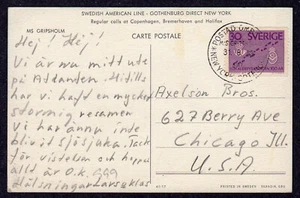 SWEDISH AMERICAN LINE - GOTHENBURG DIRECT NEW YORK
Regular calls at Copenhagen, Bremerhaven and Halifax
MS GRIPSHOLM
CARTE POSTALE
Hej! Hej!
Vi är nu mitt ute
på Atlanten. Hittills
har vi haft en mycket
stormig resa men
vi har ännu inte
blivit sjösjuka. Tack
för vistelsen och hoppas
allt är O.K.
Hälsningar
SVERIGE
Axelson Bros.
627 Berry Ave
Chicago Ill.
U.S.A.
PRINTED IN SWEDEN